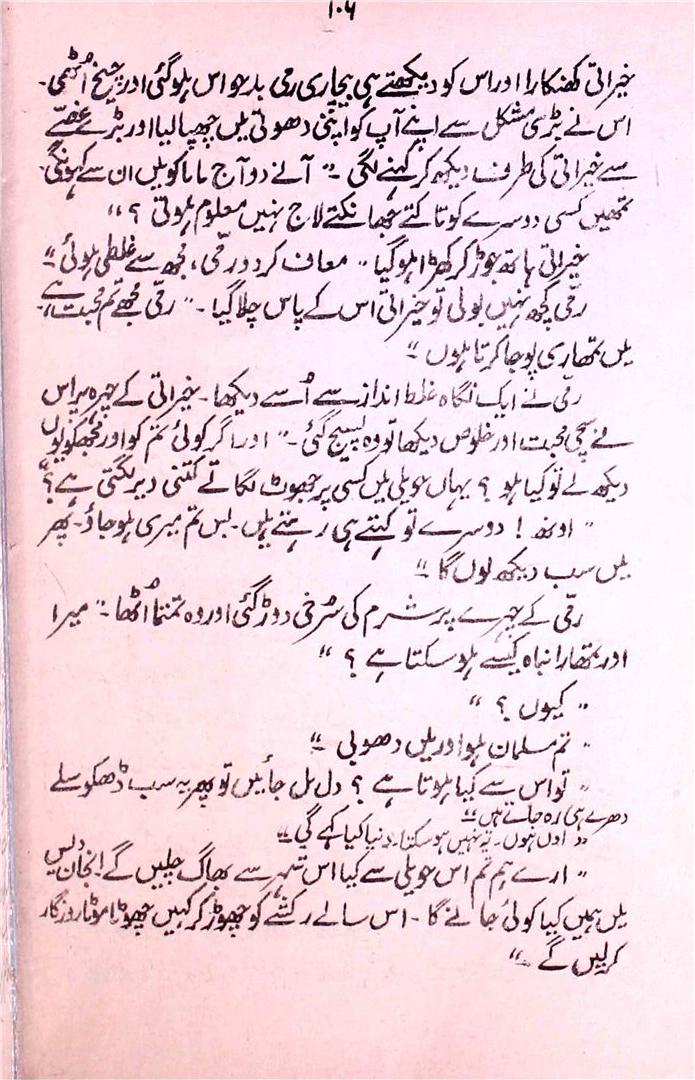 ۱۰۶
خیراتی کھنکارا اور اس کو دیکھتے ہی بیچاری رمی بدحواس ہوگئی اور چیخ اُٹھی۔
اس نے بڑی مشکل سے اپنے آپ کو اپنی دھوتی میں چھپا لیا اور بڑے غصّے
سے خیراتی کی طرف دیکھ کر کہنے لگی " آنے دو آج ماما کو میں ان سے کہونگی
تمھیں کسی دوسرے کو تاکتے جھانکتے لاج نہیں معلوم ہوتی ؟ "
خیراتی ہاتھ جوڑ کر کھڑا ہوگیا " معاف کردو رمّی، مجھ سے غلطی ہوئی "
رمّی کچھ نہیں بولی تو خیراتی اس کے پاس چلا گیا ۔ " رمّی مجھے تم محبت ہے،
میں تمھاری پوجا کرتا ہوں "
رمّی نے ایک نگاہ غلط انداز سے اُسے دیکھا ۔ خیراتی کے چہرہ پر اس
نے سچی محبت اور خلوص دیکھا تو وہ پسیج گئی ۔ " اور اگر کوئی تم کو اور مجھکو یوں
دیکھ لے تو کیا ہو ؟ یہاں حویلی میں کسی پر جھوٹ لگاتے کتنی دیر لگتی ہے ؟ "
" اونھ ! دوسرے تو کہتے ہی رہتے ہیں ۔ بس تم میری ہو جاؤ ۔ پھر
میں سب دیکھ لوں گا "
رمّی کے چہرے پر شرم کی سُرخی دوڑ گئی اور وہ تمتما اُٹھا ۔ " میرا
اور تمھارا نباہ کیسے ہوسکتا ہے ؟ "
" کیوں ؟ "
" تم مسلمان ہو اور میں دھوبی "
" تو اس سے کیا ہوتا ہے ؟ دل مل جائیں تو پھر یہ سب ڈھکوسلے
دھرے ہی رہ جاتے ہیں "
" اوں ہوں ۔ یہ نہیں ہوسکتا، دنیا کیا کہے گی "
" ارے ہم تم اس حویلی سے کیا اس شہر سے بھاگ چلیں گے ! انجان دیس
میں ہمیں کیا کوئی جانے گا ۔ اس سالے رکشے کو چھوڑ کر کہیں چھوٹا موٹا روزگار
کرلیں گے ۔ "